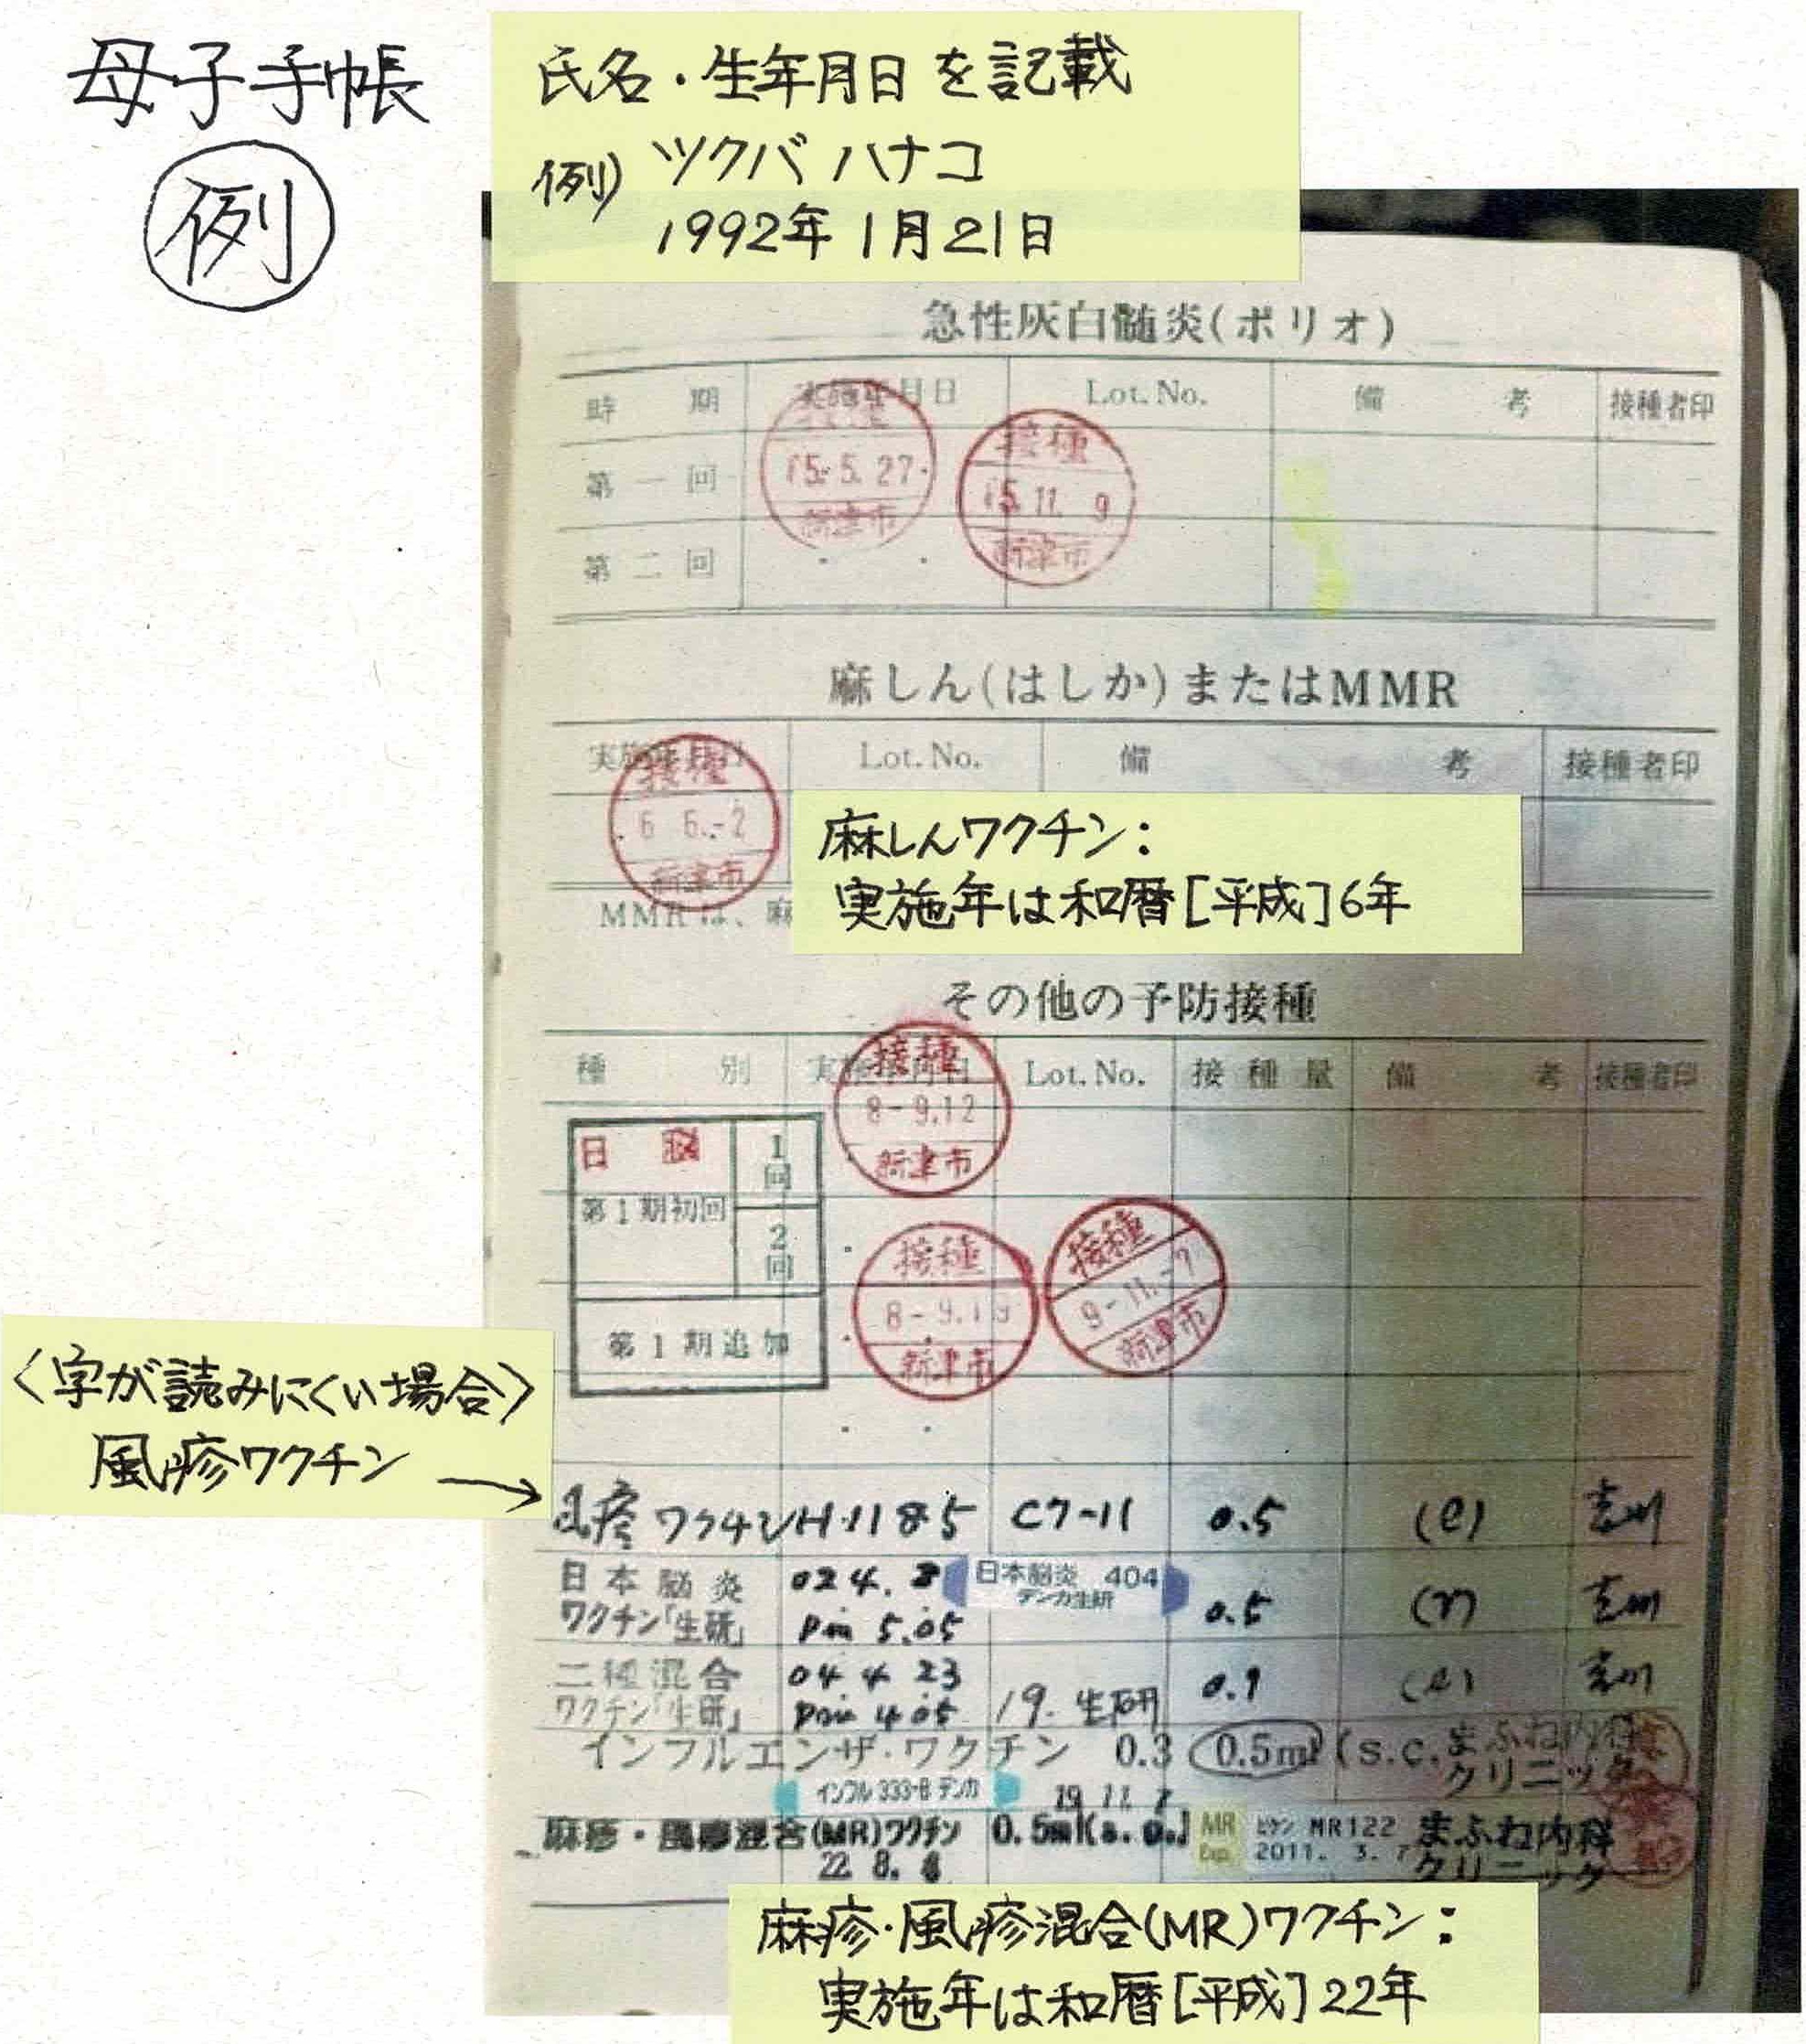 母子手帳
例
氏名・生年月日を記載
例) ツクバ ハナコ
1992年1月21日
急性灰白髄炎(ポリオ)
時期 実施年月日 Lot.No. 備考 接種者印
第一回
第二回
接種
5.5.27
新津市
接種
5.11.9
新津市
麻しん(はしか)またはMMR
Lot.No. 備考 接種者印
接種
6 6.-2
新津市
麻しんワクチン:
実施年は和暦[平成]6年
MMRは、麻
その他の予防接種
種別 Lot.No. 接種量 備考 接種者印
接種
8-9.12
新津市
日脳
第1期初回
1回
2回
第1期追加
接種
8-9.19
新津市
接種
9-11.-7
新津市
〈字が読みにくい場合〉
風疹ワクチン →
ワクチン H.11 8 5 C7-11 0.5
日本脳炎
ワクチン「生研」
日本脳炎 404
デンカ生研
5.05
0.5
二種混合
ワクチン「生研」
04 4 23
4.05
19. 生研
インフルエンザ・ワクチン 0.3 0.5ml (s.c. まふね内科
クリニック
インフル 333-B デンカ
19 11
麻疹・風疹混合(MR)ワクチン 0.5ml
22 8.
MR
Exp.
MR122
2011. 3. 7
まふね内科
クリニック
麻疹・風疹混合(MR)ワクチン:
実施年は和暦[平成]22年